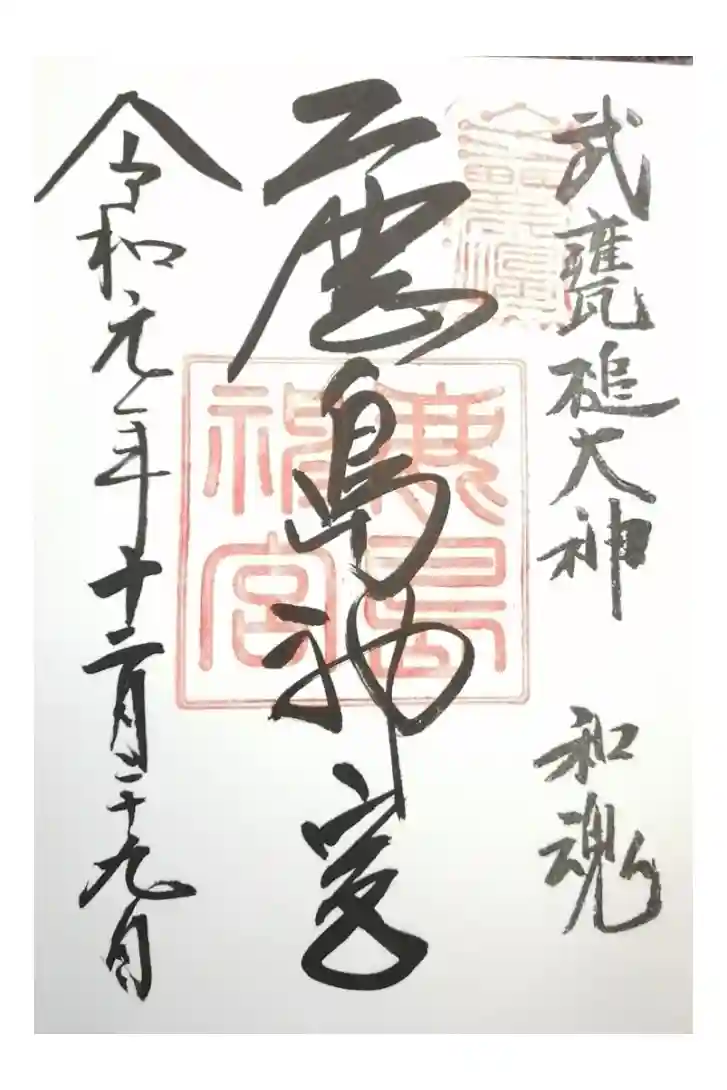 武甕槌大神 和魂
鹿島神宮
令和元年十二月二十九日
鹿島
神宮